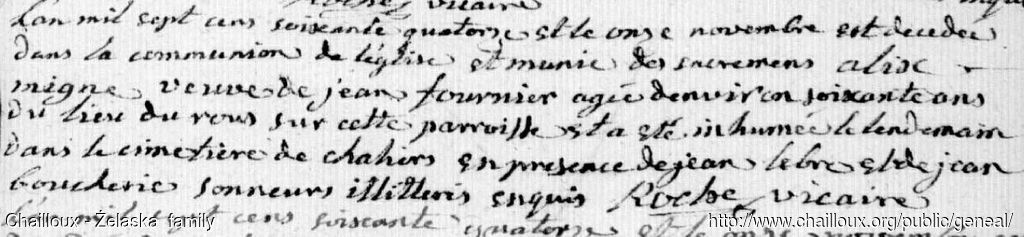 Roche vicaire
Lan mil sept cens soixante quatorse et le onse novembre est decedee
dans la communion de léglise et munie des sacremens alise
migne veuve de jean fournier agée denviron soixante ans
du lieu du rous sur cette parroisse et a eté inhumée le lendemain
dans le cimetière de chaliers en presence de jean lebre et de jean
boucherie sonneurs illitteris enquis Roche vicaire
Lan mil sept cens soixante quatorse et le onse
Chailloux - Żelaska family
http://www.chailloux.org/public/geneal/